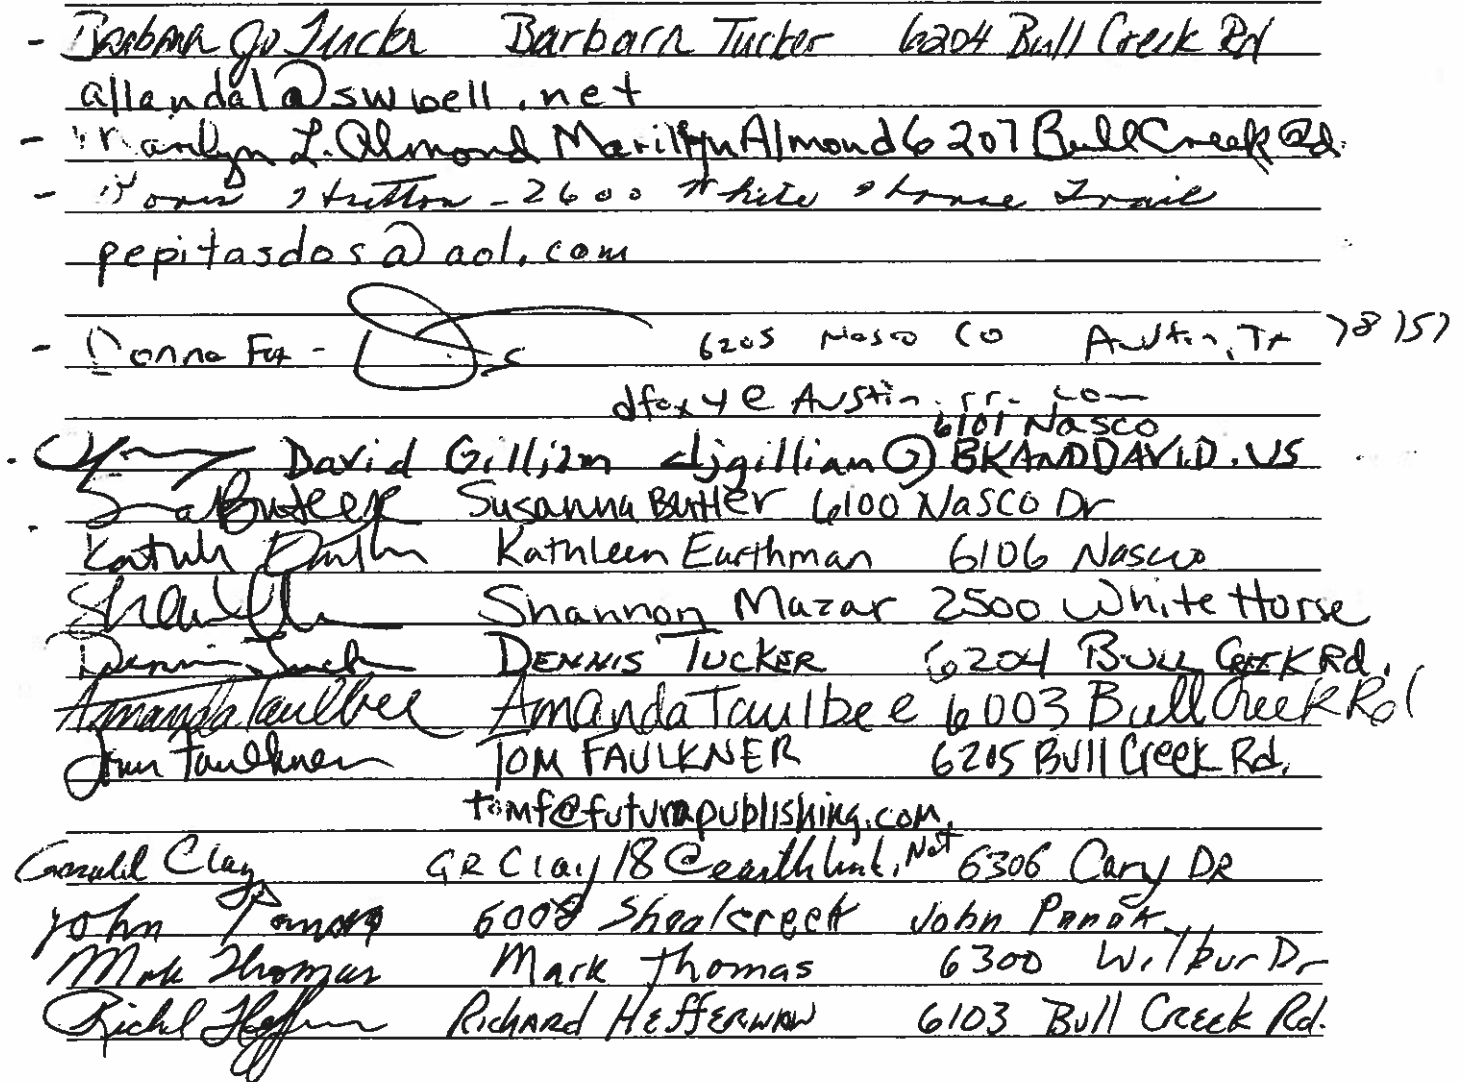 - Barbara Jo Tucker Barbara Tucker 6204 Bull Creek Rd
allandal@swbell.net
- Marilyn L. Almond Marilyn Almond 6207 Bull Creek Rd.
- Stritton - 2600 White Horse Trail
pepitasdos@aol.com
- Donna Fox - 6205 Nasco Co Austin, Tx 78757
dfox4@Austin.rr.com
6101 Nasco
David Gilliam djgillian@BKANDDAVID.US
Susanna Butler 6100 Nasco Dr
Kathleen Earthman 6106 Nasco
Shannon Mazar 2500 White Horse
Dennis Tucker DENNIS TUCKER 6204 BULL CREEK Rd.
Amanda Taulbee Amanda Taulbee 6003 Bull Creek Rd
Tom Faulkner TOM FAULKNER 6205 Bull Creek Rd.
tomf@futurapublishing.com
Gerald Clay GRClay18@earthlink.Net 6306 Cary DR
John Panak 6008 Shoalcreek John Panak
Mark Thomas Mark Thomas 6300 Wilbur Dr
Richard Heffernan 6103 Bull Creek Rd.